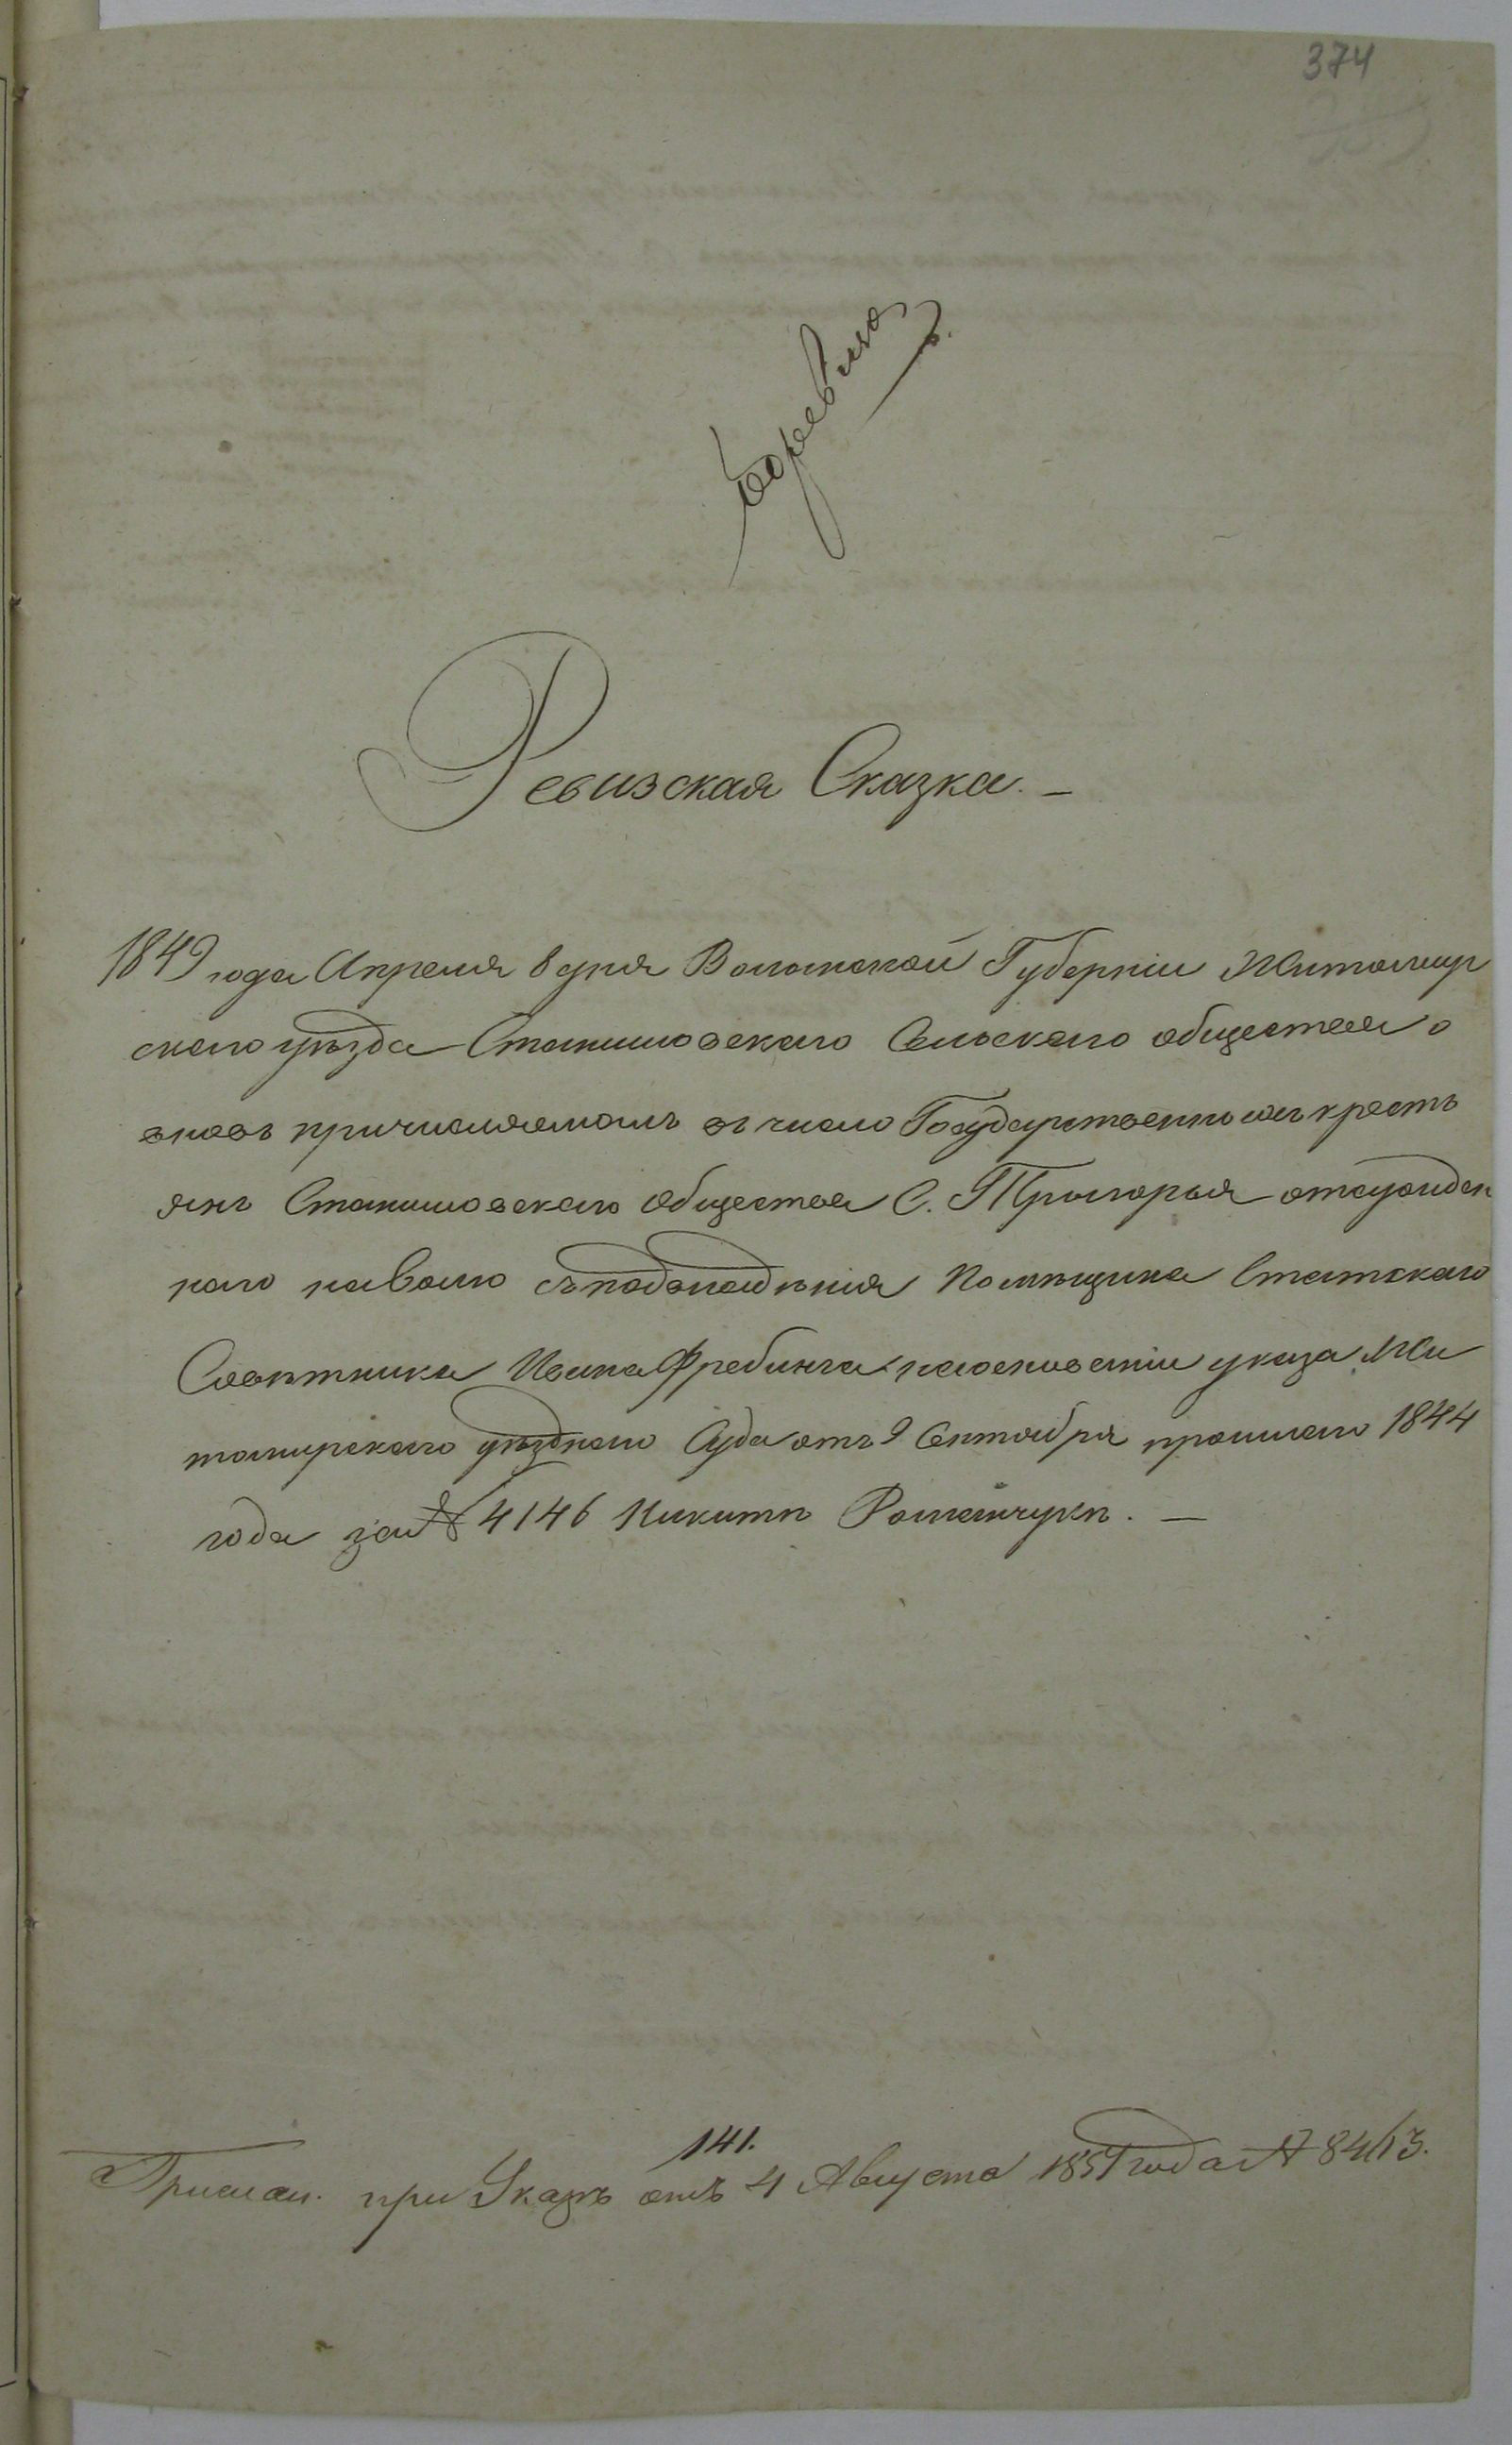 374
Ревизская Сказка. —
1849 года Апреля 8 дня Волынской Губерніи Житомир
скаго уѣзда Станишовскаго Сельскаго общества о
вновь причисляемомъ въ число Государственныхъ кресть
янъ Станишовскаго общества С. Пригорья отсужден
наго на волю съ подъ владѣнія Помѣщика Статскаго
Совѣтника Ивана Фребинга на основаніи указа Жи
томирскаго уѣзднаго Суда отъ 9 Сентября прошлаго 1844
года за № 4146 Никитѣ Романчукѣ. —
141.
Прислан. при Указѣ отъ 4 Августа 1851 года № 8413.